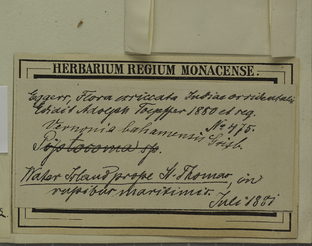 HERBARIUM REGIUM MONACENSE.
Eggers, Flora exsiccata Indiae occidentalis
Edidit Adolph Toepffer 1880 et seq.
No 415.
Vernonia bahamensis Grisb.
sp.
Water Island prope St. Thomas, in
rupibus maritimis.
Juli 1881